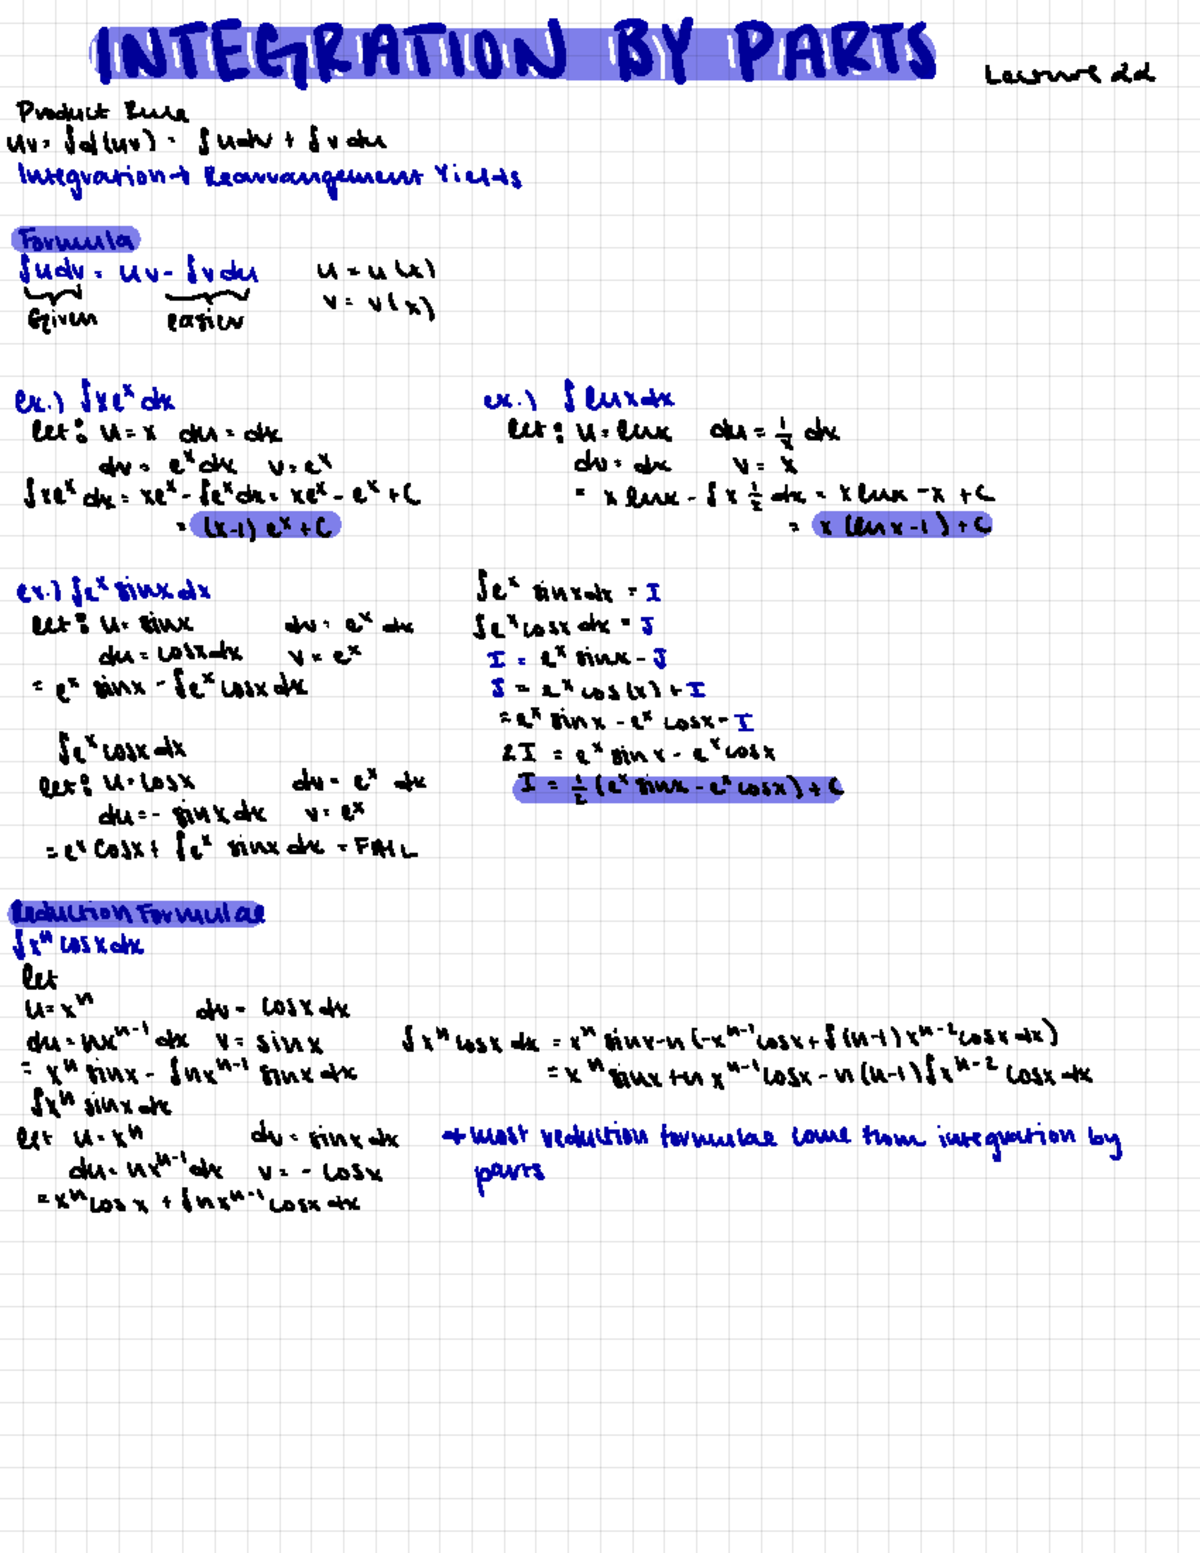 INTEGRATION BY PARTS
Lecture 22
Product Rule
uv = ∫d(uv) = ∫udv + ∫vdu
Integration + Rearrangement Yields
Formula
∫udv = uv - ∫vdu
u = u(x)
v = v(x)
Given
easier
ex.) ∫xeˣdx
let: u = x du = dx
dv = eˣdx v = eˣ
∫xeˣdx = xeˣ - ∫eˣdx = xeˣ - eˣ + C
= (x-1)eˣ + C
ex.) ∫lnxdx
let: u = lnx du = 1/x dx
dv = dx v = x
= x lnx - ∫x 1/x dx = x lnx - x + C
= x(lnx-1) + C
ex.) ∫eˣ sinxdx
let: u = sinx dv = eˣ dx
du = cosxdx v = eˣ
= eˣ sinx - ∫eˣ cosxdx
∫eˣ cosxdx
let: u = cosx dv = eˣ dx
du = - sinxdx v = eˣ
= eˣ cosx + ∫eˣ sinxdx = FAIL
∫eˣ sinxdx = I
∫eˣ cosx dx = J
I = eˣ sinx - J
J = eˣ cos(x) + I
= eˣ sinx - eˣ cosx - I
2I = eˣ sinx - eˣ cosx
I = 1/2 (eˣ sinx - eˣ cosx) + C
Reduction Formulae
∫xⁿ cosxdx
let
u = xⁿ dv = cosxdx
du = nxⁿ⁻¹dx v = sinx
= xⁿ sinx - ∫nxⁿ⁻¹ sinxdx
∫xⁿ sinxdx
let u = xⁿ dv = sinxdx
du = nxⁿ⁻¹dx v = - cosx
= xⁿ cosx + ∫nxⁿ⁻¹ cosxdx
∫xⁿ cosx dx = xⁿ sinx - n(-xⁿ⁻¹cosx + ∫(n-1)xⁿ⁻²cosxdx)
= xⁿ sinx + n xⁿ⁻¹cosx - n(n-1)∫xⁿ⁻² cosxdx
→ most reduction formulae come from integration by
parts